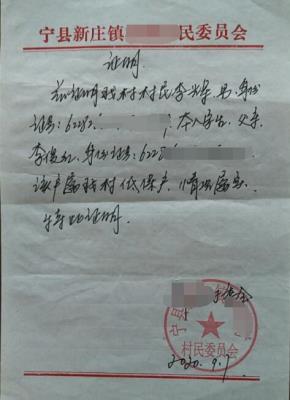 宁县新庄镇 民委员会
证明
兹证明我村村民李 男,身份
证号:622 本人 父亲
李俊 身份证号:622
该户属我村低保户,情况属实。
特此证明。
宁县
村民委员会
2020.9.7